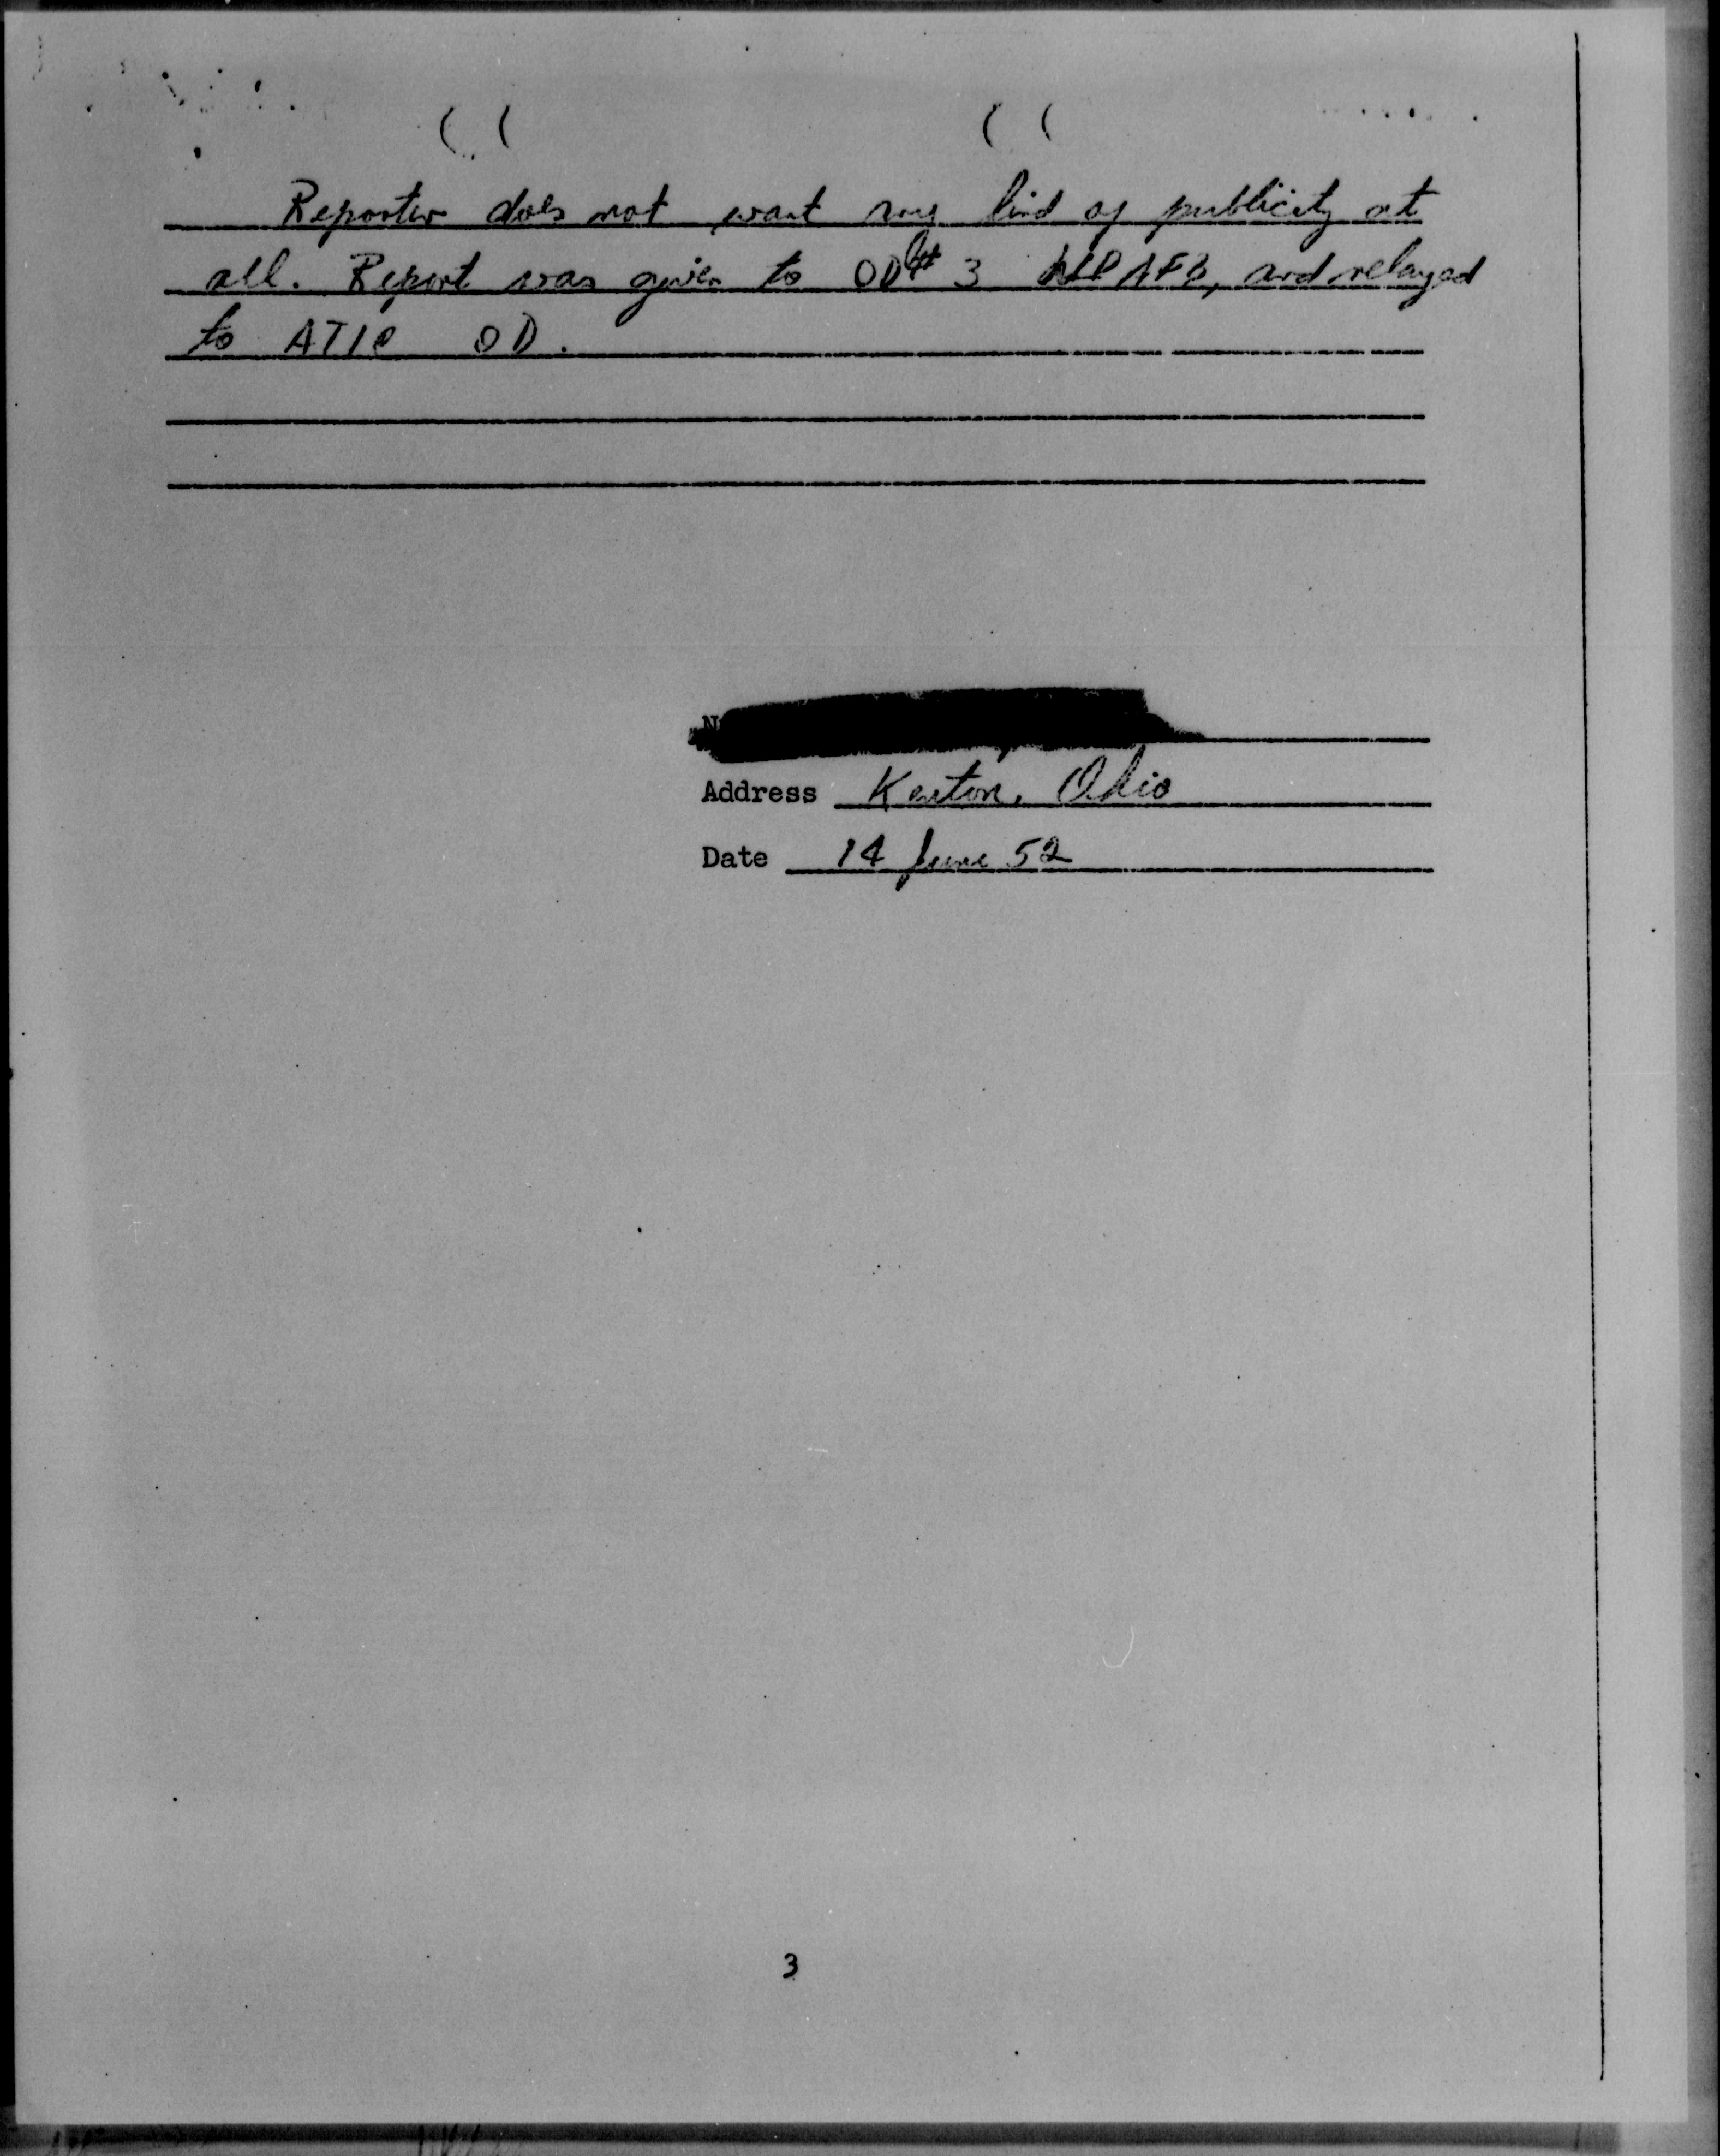 Reporter does not want any kind of publicity at
all. Report was given to OD # 3 WPAFB, and relayed
to ATIC OD.
N
Address Kenton, Ohio
Date 14 June 52
3